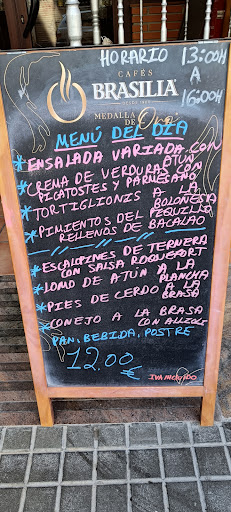 HORARIO 13:00H
A
16:00H
CAFÉS
BRASILIA
DESDE 1928
MEDALLA DE Oro
MENÚ DEL DÍA
*ENSALADA VARIADA CON
ATÚN
*CREMA DE VERDURAS CON
PICATOSTES Y PARMESANO
*TORTIGLIONIS A LA
BOLOÑESA
*PIMIENTOS DEL PIQUILLO
RELLENOS DE BACALAO
*ESCALOPINES DE TERNERA
CON SALSA ROQUEFORT
*LOMO DE ATÚN A LA
PLANCHA
*PIES DE CERDO A LA
BRASA
*CONEJO A LA BRASA
CON ALLIOLI
PAN, BEBIDA, POSTRE
12.00 €
IVA INCLUIDO